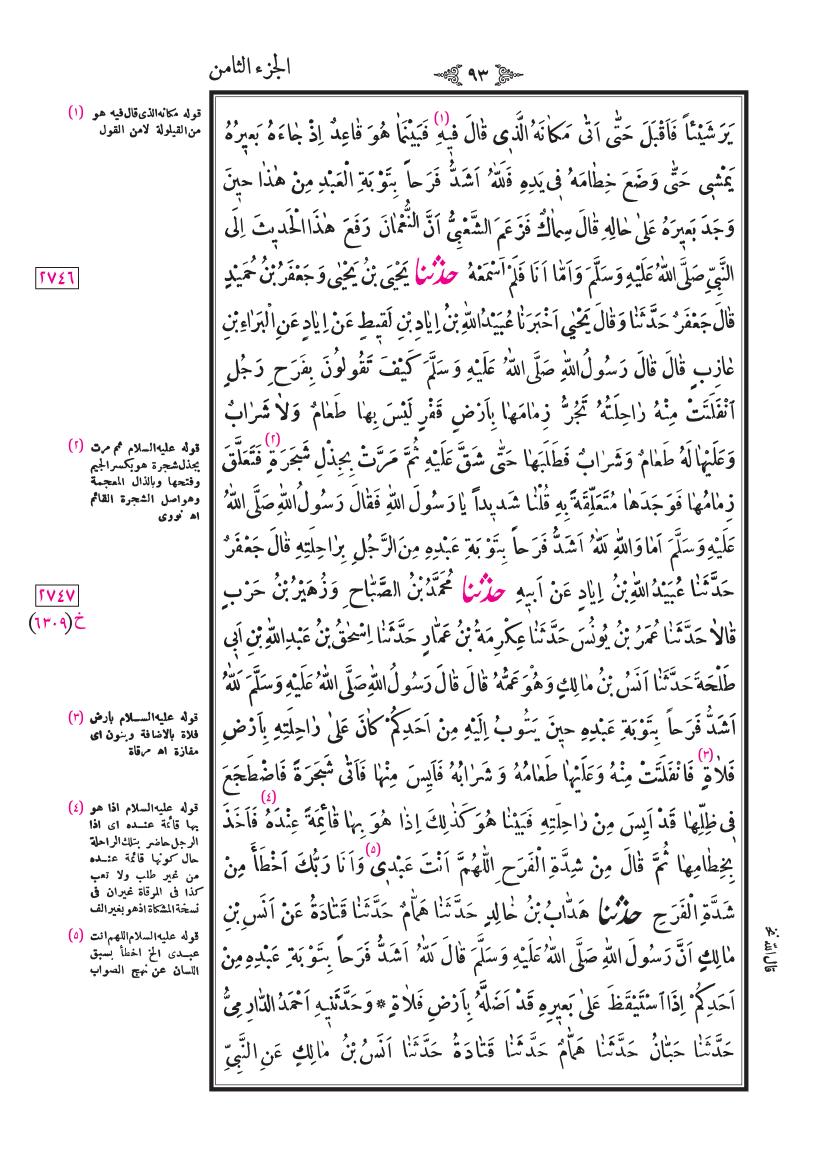 ٩٣
الجزء الثامن
يَرَ شَيْئاً فَاَقْبَلَ حَتّٰى اَتٰى مَكَانَهُ الَّذى قَالَ فيهِ (١) فَبَيْنَمَا هُوَ قَاعِدٌ اِذْ جَاءَهُ بَعيرُهُ
يَمْشى حَتّٰى وَضَعَ خِطَامَهُ فى يَدِهِ فَلَلّٰهُ اَشَدُّ فَرَحاً بِتَوْبَةِ الْعَبْدِ مِنْ هٰذَا حينَ
وَجَدَ بَعيرَهُ عَلىٰ حَالِهِ قَالَ سِمَاكٌ فَزَعَمَ الشَّعْبِىُّ اَنَّ النُّعْمَانَ رَفَعَ هٰذَا الْحَديثَ اِلَى
النَّبِىِّ صَلَّى اللّٰهُ عَلَيْهِ وَسَلَّمَ وَاَمَّا اَنَا فَلَمْ اَسْمَعْهُ حدثنا يَحْيَى بْنُ يَحْيٰى وَجَعْفَرُ بْنُ حُمَيْدٍ
قَالَ جَعْفَرٌ حَدَّثَنَا وَقَالَ يَحْيٰى اَخْبَرَنَا عُبَيْدُ اللّٰهِ بْنُ اِيَادِ بْنِ لَقيطٍ عَنْ اِيَادٍ عَنِ الْبَرَاءِ بْنِ
عَازِبٍ قَالَ قَالَ رَسُولُ اللّٰهِ صَلَّى اللّٰهُ عَلَيْهِ وَسَلَّمَ كَيْفَ تَقُولُونَ بِفَرَحِ رَجُلٍ
اَنْفَلَتَتْ مِنْهُ رَاحِلَتُهُ تَجُرُّ زِمَامَهَا بِاَرْضٍ قَفْرٍ لَيْسَ بِهَا طَعَامٌ وَلَا شَرَابٌ
وَعَلَيْهَا لَهُ طَعَامٌ وَشَرَابٌ فَطَلَبَهَا حَتّٰى شَقَّ عَلَيْهِ ثُمَّ مَرَّتْ بِجِذْلِ شَجَرَةٍ (٢) فَتَعَلَّقَ
زِمَامُهَا فَوَجَدَهَا مُتَعَلِّقَةً بِهِ قُلْنَا شَديداً يَا رَسُولَ اللّٰهِ فَقَالَ رَسُولُ اللّٰهِ صَلَّى اللّٰهُ
عَلَيْهِ وَسَلَّمَ اَمَا وَاللّٰهِ لَلّٰهُ اَشَدُّ فَرَحاً بِتَوْبَةِ عَبْدِهِ مِنَ الرَّجُلِ بِرَاحِلَتِهِ قَالَ جَعْفَرٌ
حَدَّثَنَا عُبَيْدُ اللّٰهِ بْنُ اِيَادٍ عَنْ اَبيهِ حدثنا مُحَمَّدُ بْنُ الصَّبَّاحِ وَزُهَيْرُ بْنُ حَرْبٍ
قَالَا حَدَّثَنَا عُمَرُ بْنُ يُونُسَ حَدَّثَنَا عِكْرِمَةُ بْنُ عَمَّارٍ حَدَّثَنَا اِسْحٰقُ بْنُ عَبْدِ اللّٰهِ بْنِ اَبى
طَلْحَةَ حَدَّثَنَا اَنَسُ بْنُ مَالِكٍ وَهُوَ عَمُّهُ قَالَ قَالَ رَسُولُ اللّٰهِ صَلَّى اللّٰهُ عَلَيْهِ وَسَلَّمَ لَلّٰهُ
اَشَدُّ فَرَحاً بِتَوْبَةِ عَبْدِهِ حينَ يَتُوبُ اِلَيْهِ مِنْ اَحَدِكُمْ كَانَ عَلىٰ رَاحِلَتِهِ بِاَرْضِ
فَلَاةٍ (٣) فَانْفَلَتَتْ مِنْهُ وَعَلَيْهَا طَعَامُهُ وَشَرَابُهُ فَاَيِسَ مِنْهَا فَاَتٰى شَجَرَةً فَاضْطَجَعَ
فى ظِلِّهَا قَدْ اَيِسَ مِنْ رَاحِلَتِهِ فَبَيْنَا هُوَ كَذٰلِكَ اِذَا هُوَ بِهَا قَائِمَةً عِنْدَهُ (٤) فَاَخَذَ
بِخِطَامِهَا ثُمَّ قَالَ مِنْ شِدَّةِ الْفَرَحِ اَللّٰهُمَّ اَنْتَ عَبْدى (٥) وَاَنَا رَبُّكَ اَخْطَأَ مِنْ
شِدَّةِ الْفَرَحِ حدثنا هَدَّابُ بْنُ خَالِدٍ حَدَّثَنَا هَمَّامٌ حَدَّثَنَا قَتَادَةُ عَنْ اَنَسِ بْنِ
مَالِكٍ اَنَّ رَسُولَ اللّٰهِ صَلَّى اللّٰهُ عَلَيْهِ وَسَلَّمَ قَالَ لَلّٰهُ اَشَدُّ فَرَحاً بِتَوْبَةِ عَبْدِهِ مِنْ
اَحَدِكُمْ اِذَا اسْتَيْقَظَ عَلىٰ بَعيرِهِ قَدْ اَضَلَّهُ بِاَرْضِ فَلَاةٍ * وَحَدَّثَنيهِ اَحْمَدُ الدَّارِمِىُّ
حَدَّثَنَا حَبَّانُ حَدَّثَنَا هَمَّامٌ حَدَّثَنَا قَتَادَةُ حَدَّثَنَا اَنَسُ بْنُ مَالِكٍ عَنِ النَّبِىِّ
(١) قوله مكانه الذى قال فيه هو
من القيلولة لامن القول
٢٧٤٦
(٢) قوله عليه السلام ثم مرت
بجذل شجرة هو بكسر الجيم
وفتحها وبالذال المعجمة
وهو اصل الشجرة القائم
اه نووى
٢٧٤٧
خ (٦٣٠٩)
(٣) قوله عليه السلام بارض
فلاة بالاضافة وبنون اى
مفازة اه مرقاة
(٤) قوله عليه السلام اذا هو
بها قائمة عنده اى اذا
الرجل حاضر بتلك الراحلة
حال كونها قائمة عنده
من غير طلب ولا تعب
كذا فى المرقاة غير ان فى
نسخة المشكاة اذ هو بغير الف
(٥) قوله عليه السلام اللهم انت
عبدى الخ اخطأ بسبق
اللسان عن نهج الصواب
قال لله نخ